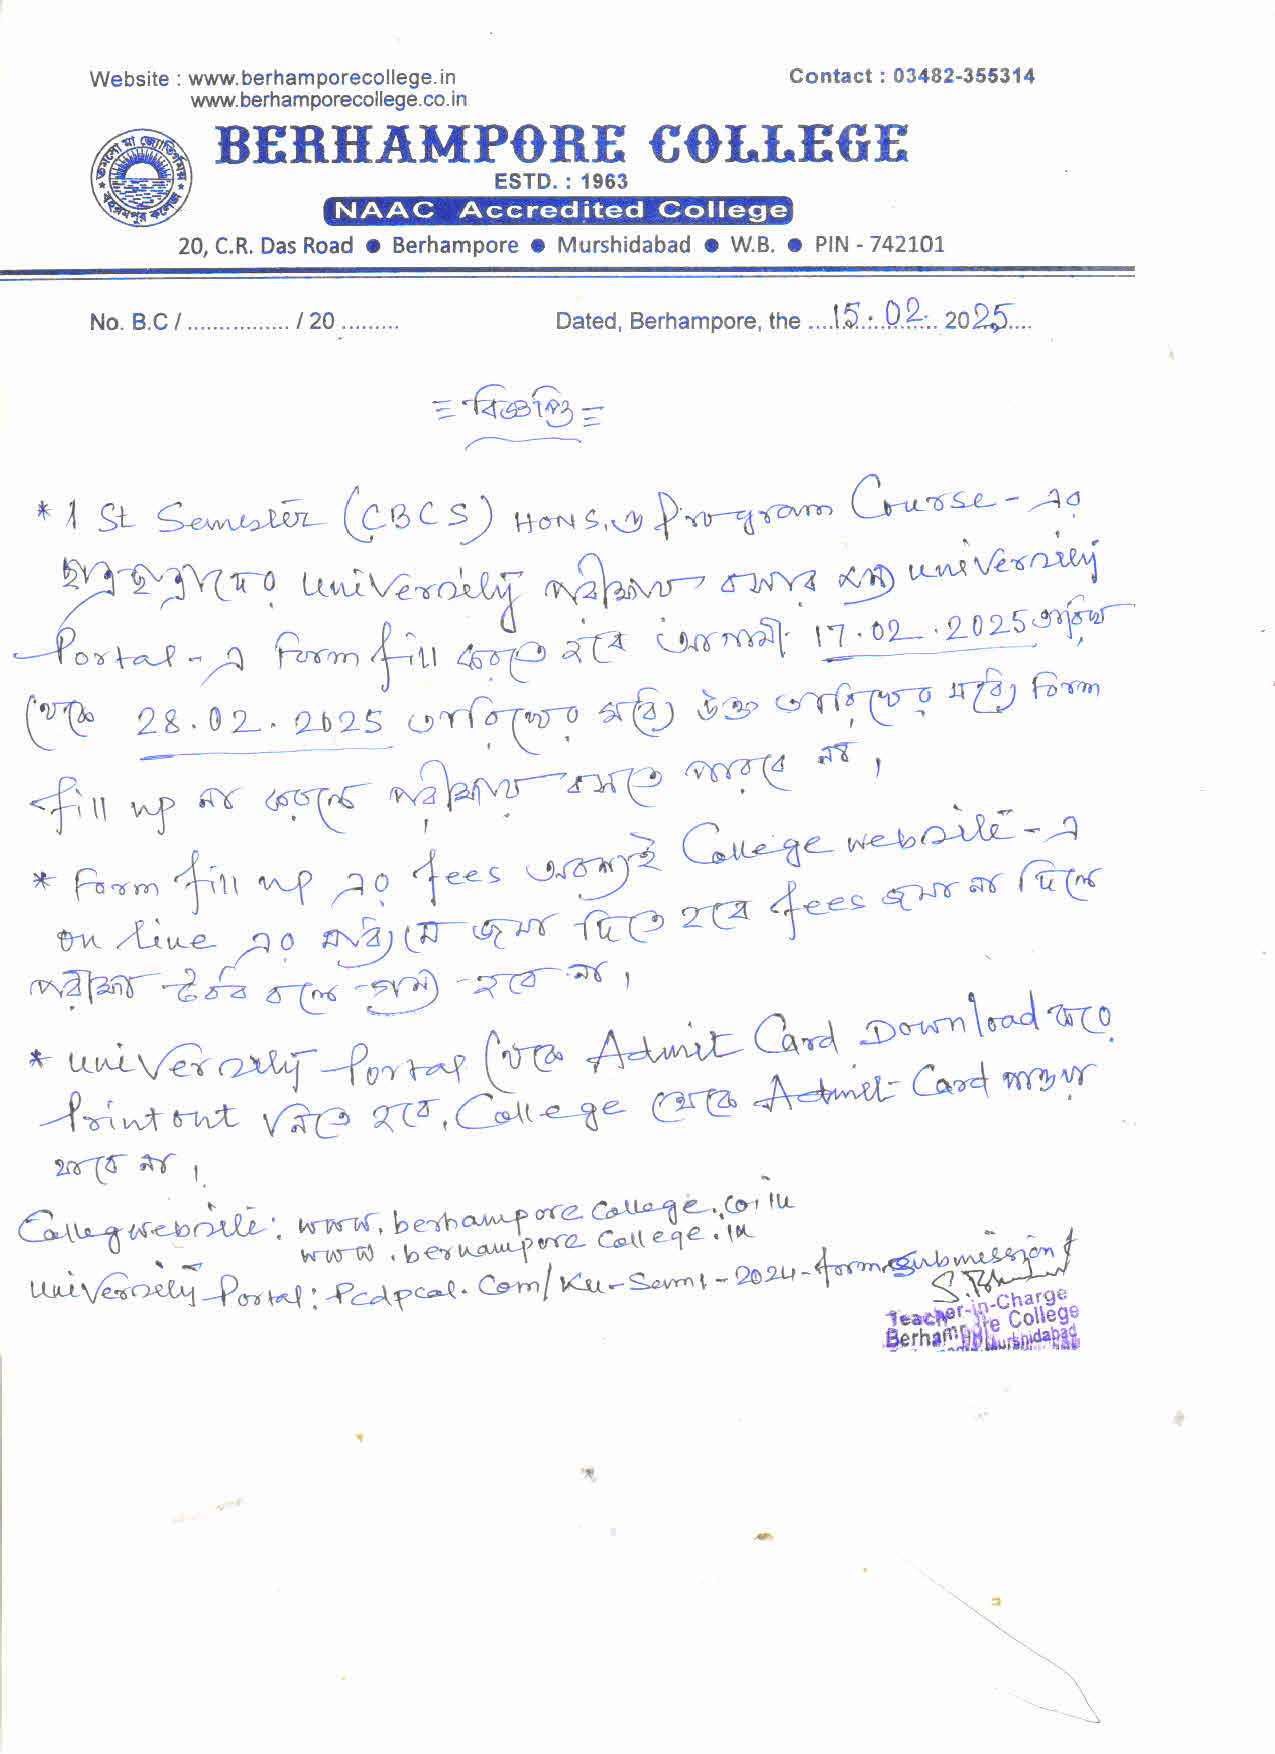 Website : www.berhamporecollege.in
Contact : 03482-355314
www.berhamporecollege.co.in
BERHAMPORE COLLEGE
ESTD. : 1963
NAAC Accredited College
20, C.R. Das Road ● Berhampore ● Murshidabad ● W.B. ● PIN - 742101
No. B.C / ................ / 20 ......... Dated, Berhampore, the ....15.02. 2025....
বিজ্ঞপ্তি
* 1 St Semester (CBCS) HONS, ও Program Course - এর
ছাত্রছাত্রীদের University পরীক্ষায় বসার জন্য University
Portal - এ Form fill করতে হবে আগামী 17.02.2025 তারিখ
থেকে 28.02.2025 তারিখের মধ্যে উক্ত তারিখের মধ্যে Form
fill up না করলে পরীক্ষায় বসতে পারবে না।
* Form fill up এর fees অবশ্যই College website - এ
on line এর মাধ্যমে জমা দিতে হবে fees জমা না দিলে
পরীক্ষা বলে গণ্য হবে না।
* University Portal থেকে Admit Card Download করে
Print out নিতে হবে, College থেকে Admit Card পাওয়া
যাবে না।
College website: www.berhampore College.co.in
www.berhampore College.in
University Portal: Pcdpcal.Com/Ku-Sem1-2024-form-submission/
Teacher-in-Charge
Berhampore College
Murshidabad